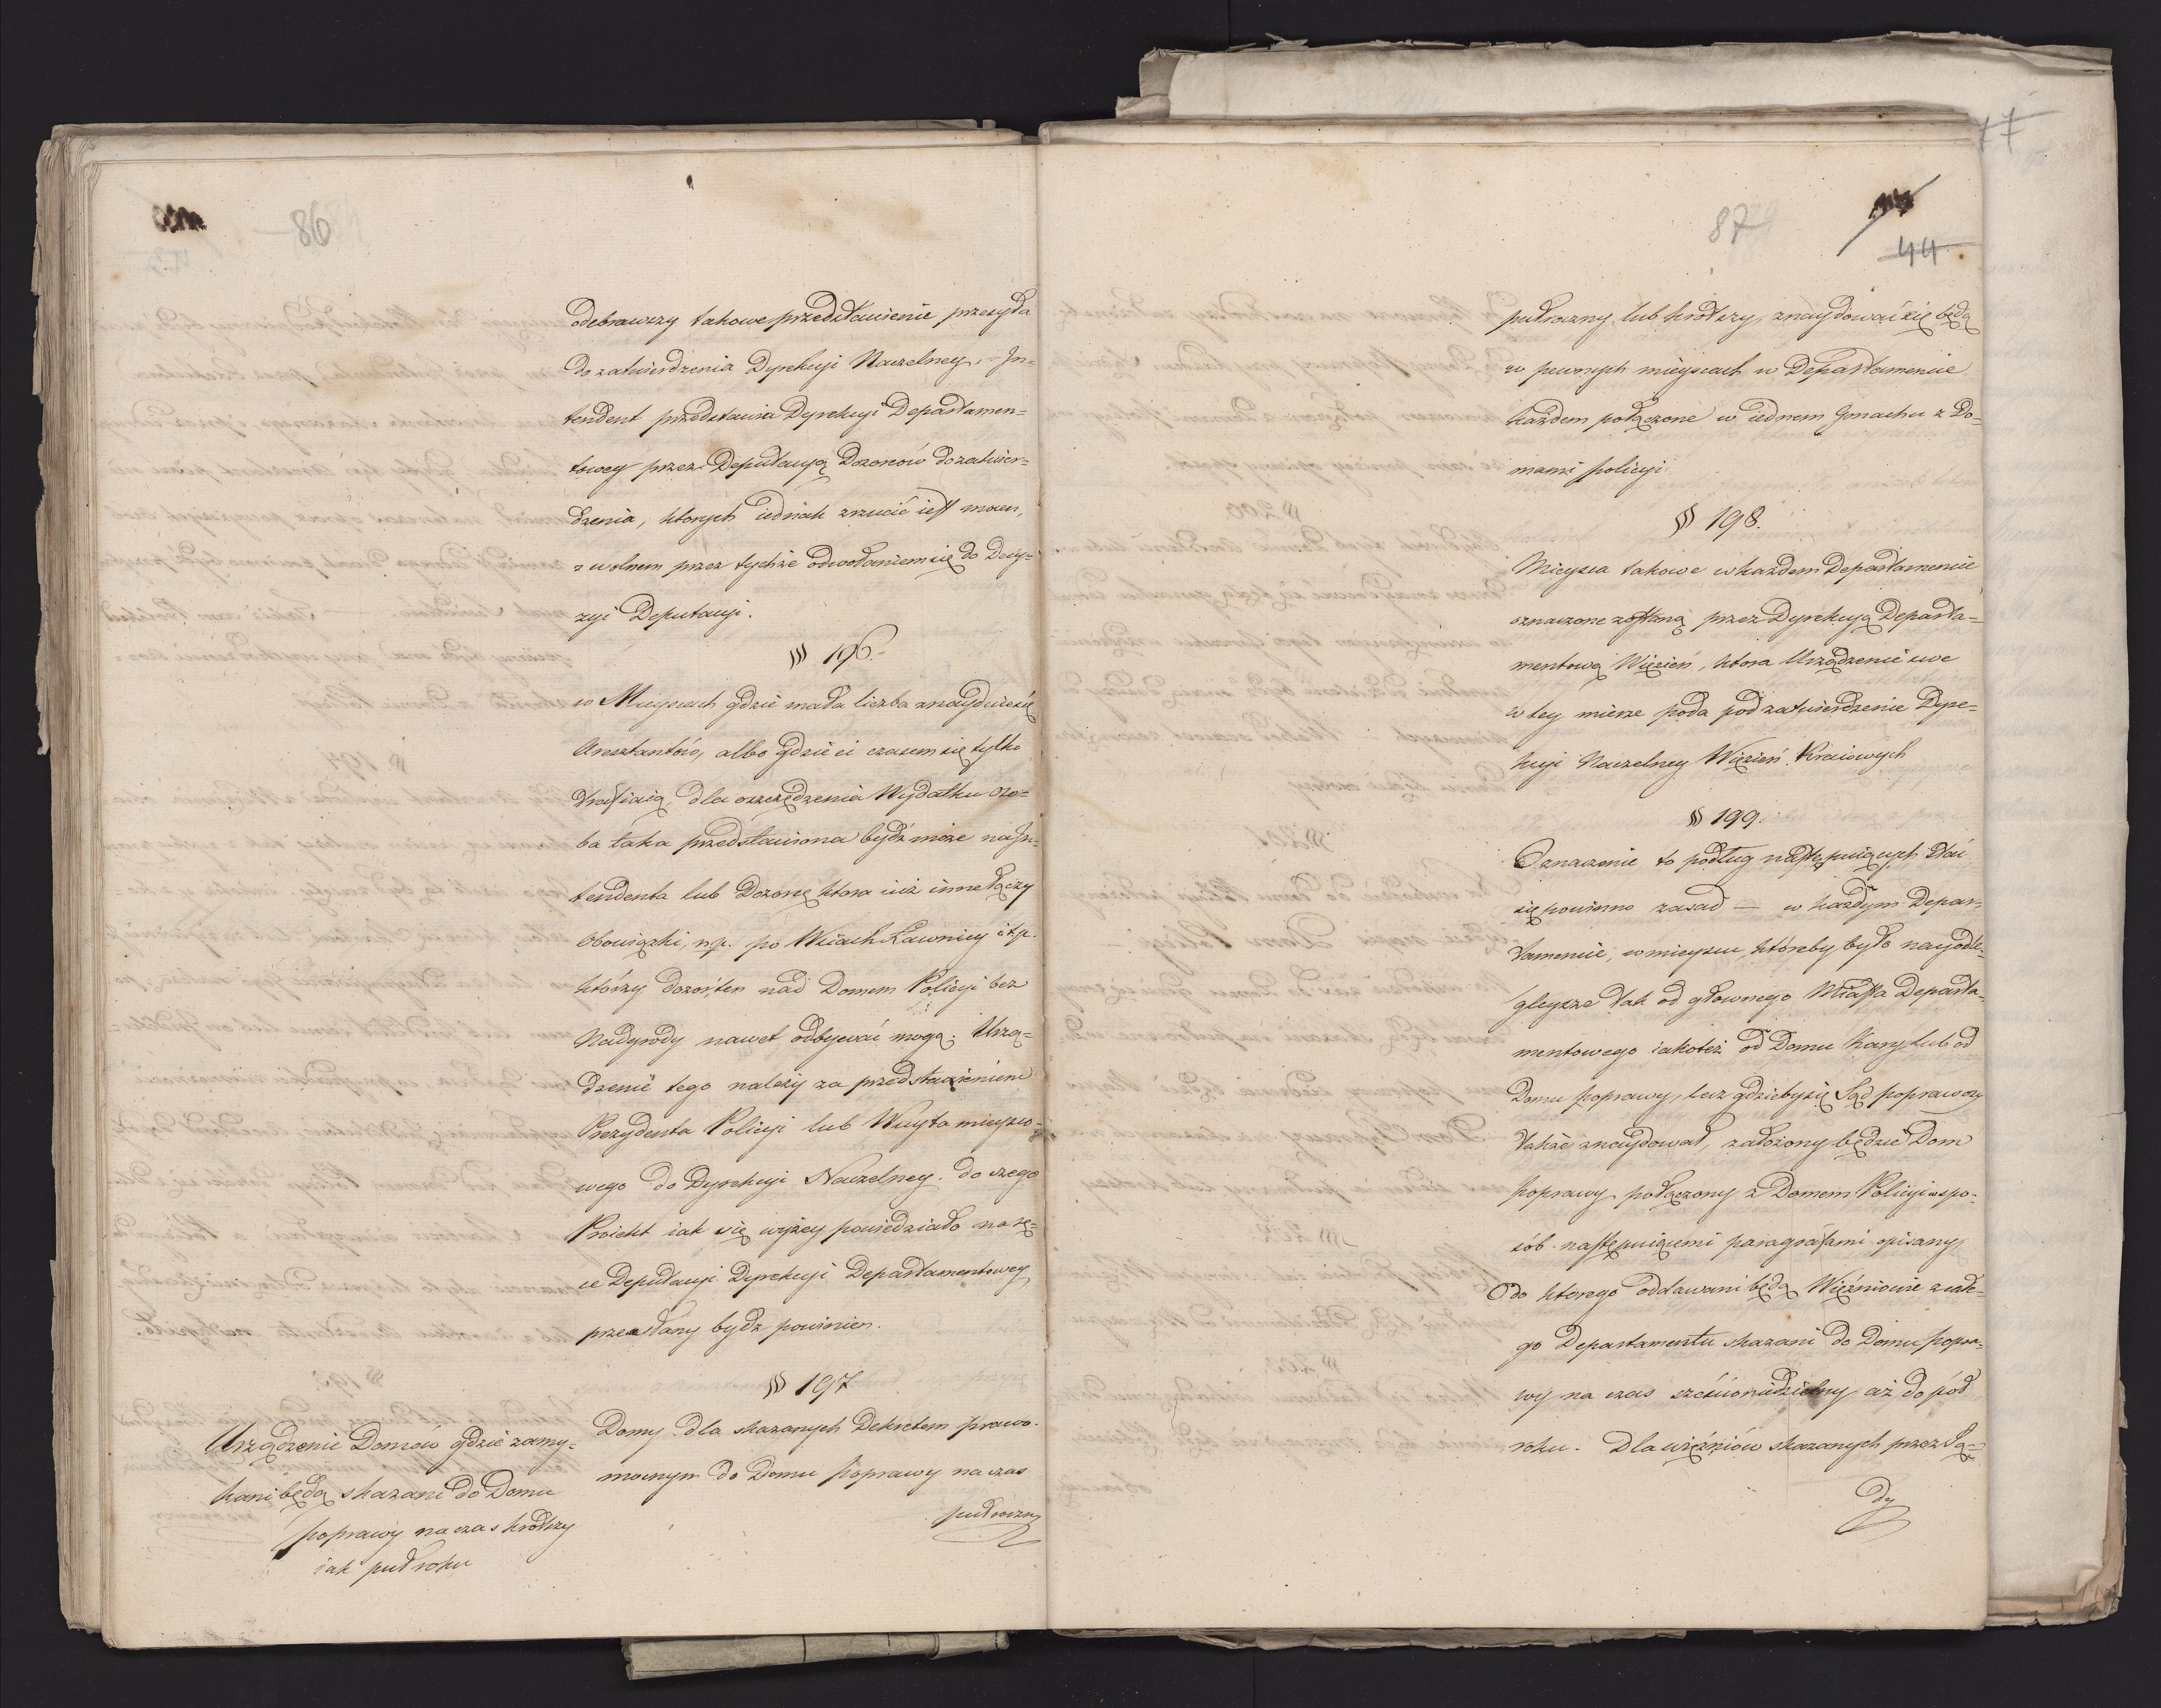 86
odebrawszy takowe przedstawienie przesyła
do zatwierdzenia Dyrekcyi Naczelney. – In=
tendent przedstawia Dyrekcyi Departamen=
towey przez Deputacyą Dozorców do zatwier=
dzenia, ktorych iednak zrzucić iest mocen,
z wolnem przez tychże odwołaniem się do Decy=
zyi Deputacyi.
§ 196.
w Mieyscach gdzie mała liczba znayduie się
Aresztantów, albo gdzie ci czasem się tylko
trafiaią, dla oszczędzenia Wydatku oso=
ba taka przedstawiona bydź może na In=
tendenta lub Dozorcę ktora iuż inne łączy
Obowiązki, n.p. po Wsiach Ławnicy i t.p.
którzy dozór ten nad Domem Policyi bez
Nadgrody nawet odbywać mogą. Urzą=
dzenie tego należy za przedstawieniem
Prezydenta Policyi lub Wuyta mieysco=
wego do Dyrekcyi Naczelney. do czego
Proiekt iak się wyżey powiedziało na rę=
ce Deputacyi Dyrekcyi Departamentowey
przesłany bydz powinien.
§ 197
Urządzenie Domów gdzie zamy=
kani będą skazani do Domu
poprawy na czas krótszy
iak puł roku
Domy dla skazanych Dekretem prawo.
mocnym do Domu Poprawy na czas
pułroczny
87
44
pułroczny lub krótszy, znaydować się będą
w pewnych mieyscach w Departamencie
każdem połączone w iednem Gmachu z Do=
mami policyi
§ 198.
Mieysca takowe w każdem Departamencie
oznaczone zostaną przez Dyrekcyą Departa=
mentową Więzień, ktora Urządzenie swe
w tey mierze poda pod zatwierdzenie Dyre=
kcyi Naczelney Więzień Kraiowych
§ 199.
Oznaczenie to podług następuiących stać
się powinno zasad — w każdym Depar=
tamencie, w mieyscu, któreby było nayodle=
gleysze tak od głownego Miasta Departa=
mentowego iakoteż od Domu Kary lub od
Domu poprawy, lecz gdzieby się Sąd poprawczy
także znaydował, założony będzie Dom
poprawy połączony z Domem Policyi w spo=
sób następuiącemi paragrafami opisany,
Do ktorego oddawani będą Więźniowie z całe=
go Departamentu skazani do Domu popra=
wy na czas sześcioniedzielny aż do pół
roku. Dla więźniów skazanych przez Są=
dy
77